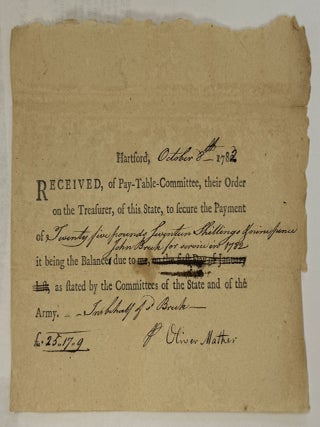 Hartford, October 8th 1782
RECEIVED, of Pay-Table-Committee, their Order
on the Treasurer, of this State, to secure the Payment
of Twenty five pounds Seventeen Shillings & nine pence
John Breck for service in 1782
it being the Balance due to me, on the first Day of January
last, as stated by the Committees of the State and of the
Army. – – In behalf of sd Breck –
£25.17.9
Pr Oliver Mather